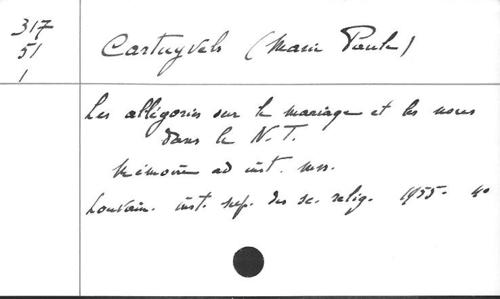 317
51
1
Cartuyvels (Marie Paule)
Les allégories sur le mariage et les noces
dans le N.T.
Mémoire ad inst. mss.
Louvain. inst. sup. des sc. relig. 1955. 4°